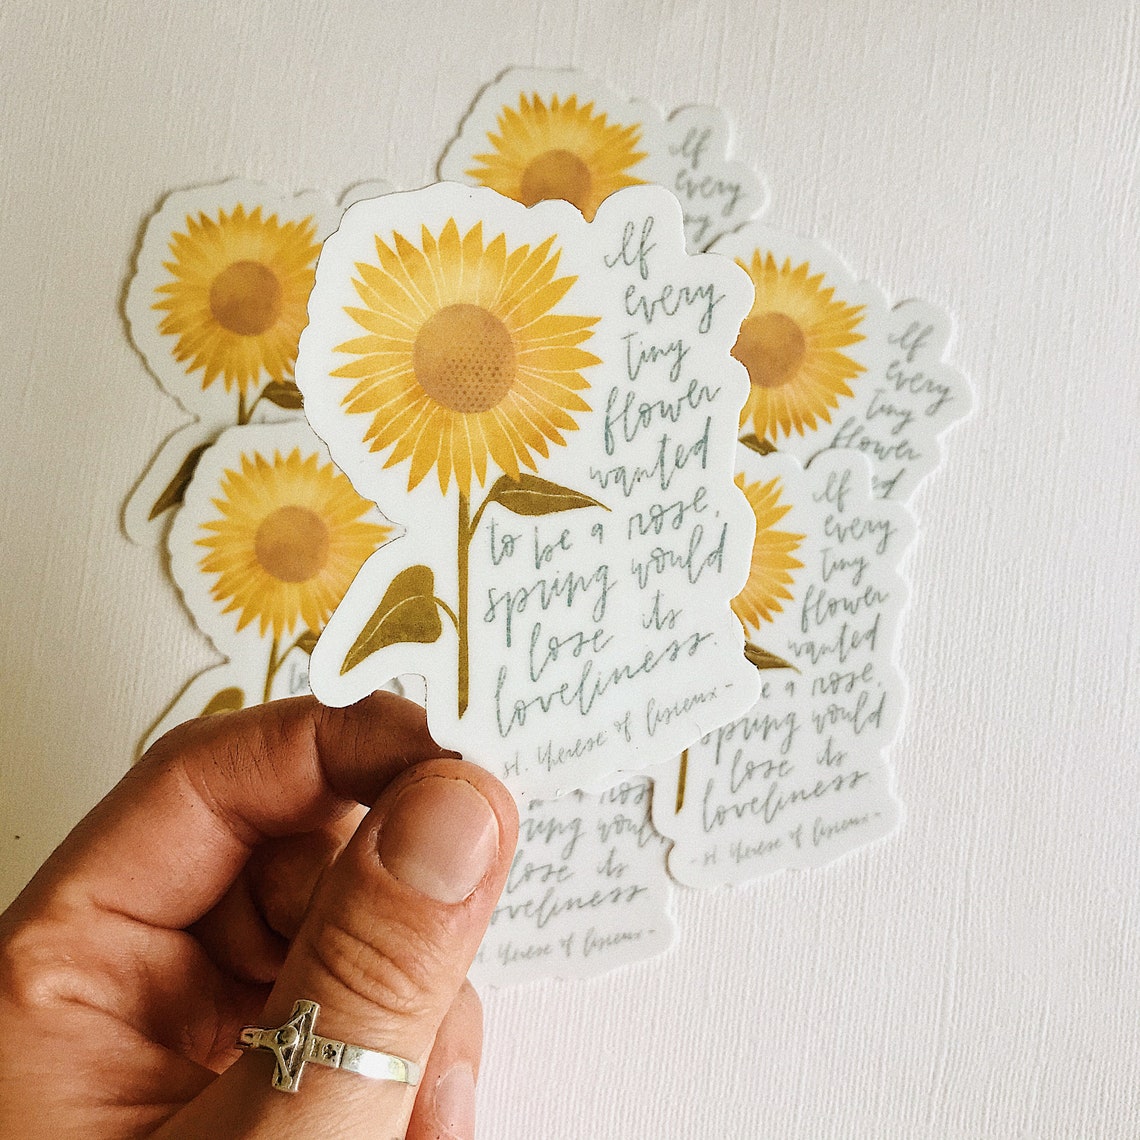 If
every
tiny
flower
wanted
to be a rose,
spring would
lose its
loveliness.
st. Therese of lisieux -
If
every
If
every
tiny
flower
If
every
tiny
flower
wanted
e a rose,
spring would
lose its
loveliness.
- st. Therese of lisieux -
a rose
would
lose its
oveliness.
Therese of lisieux -